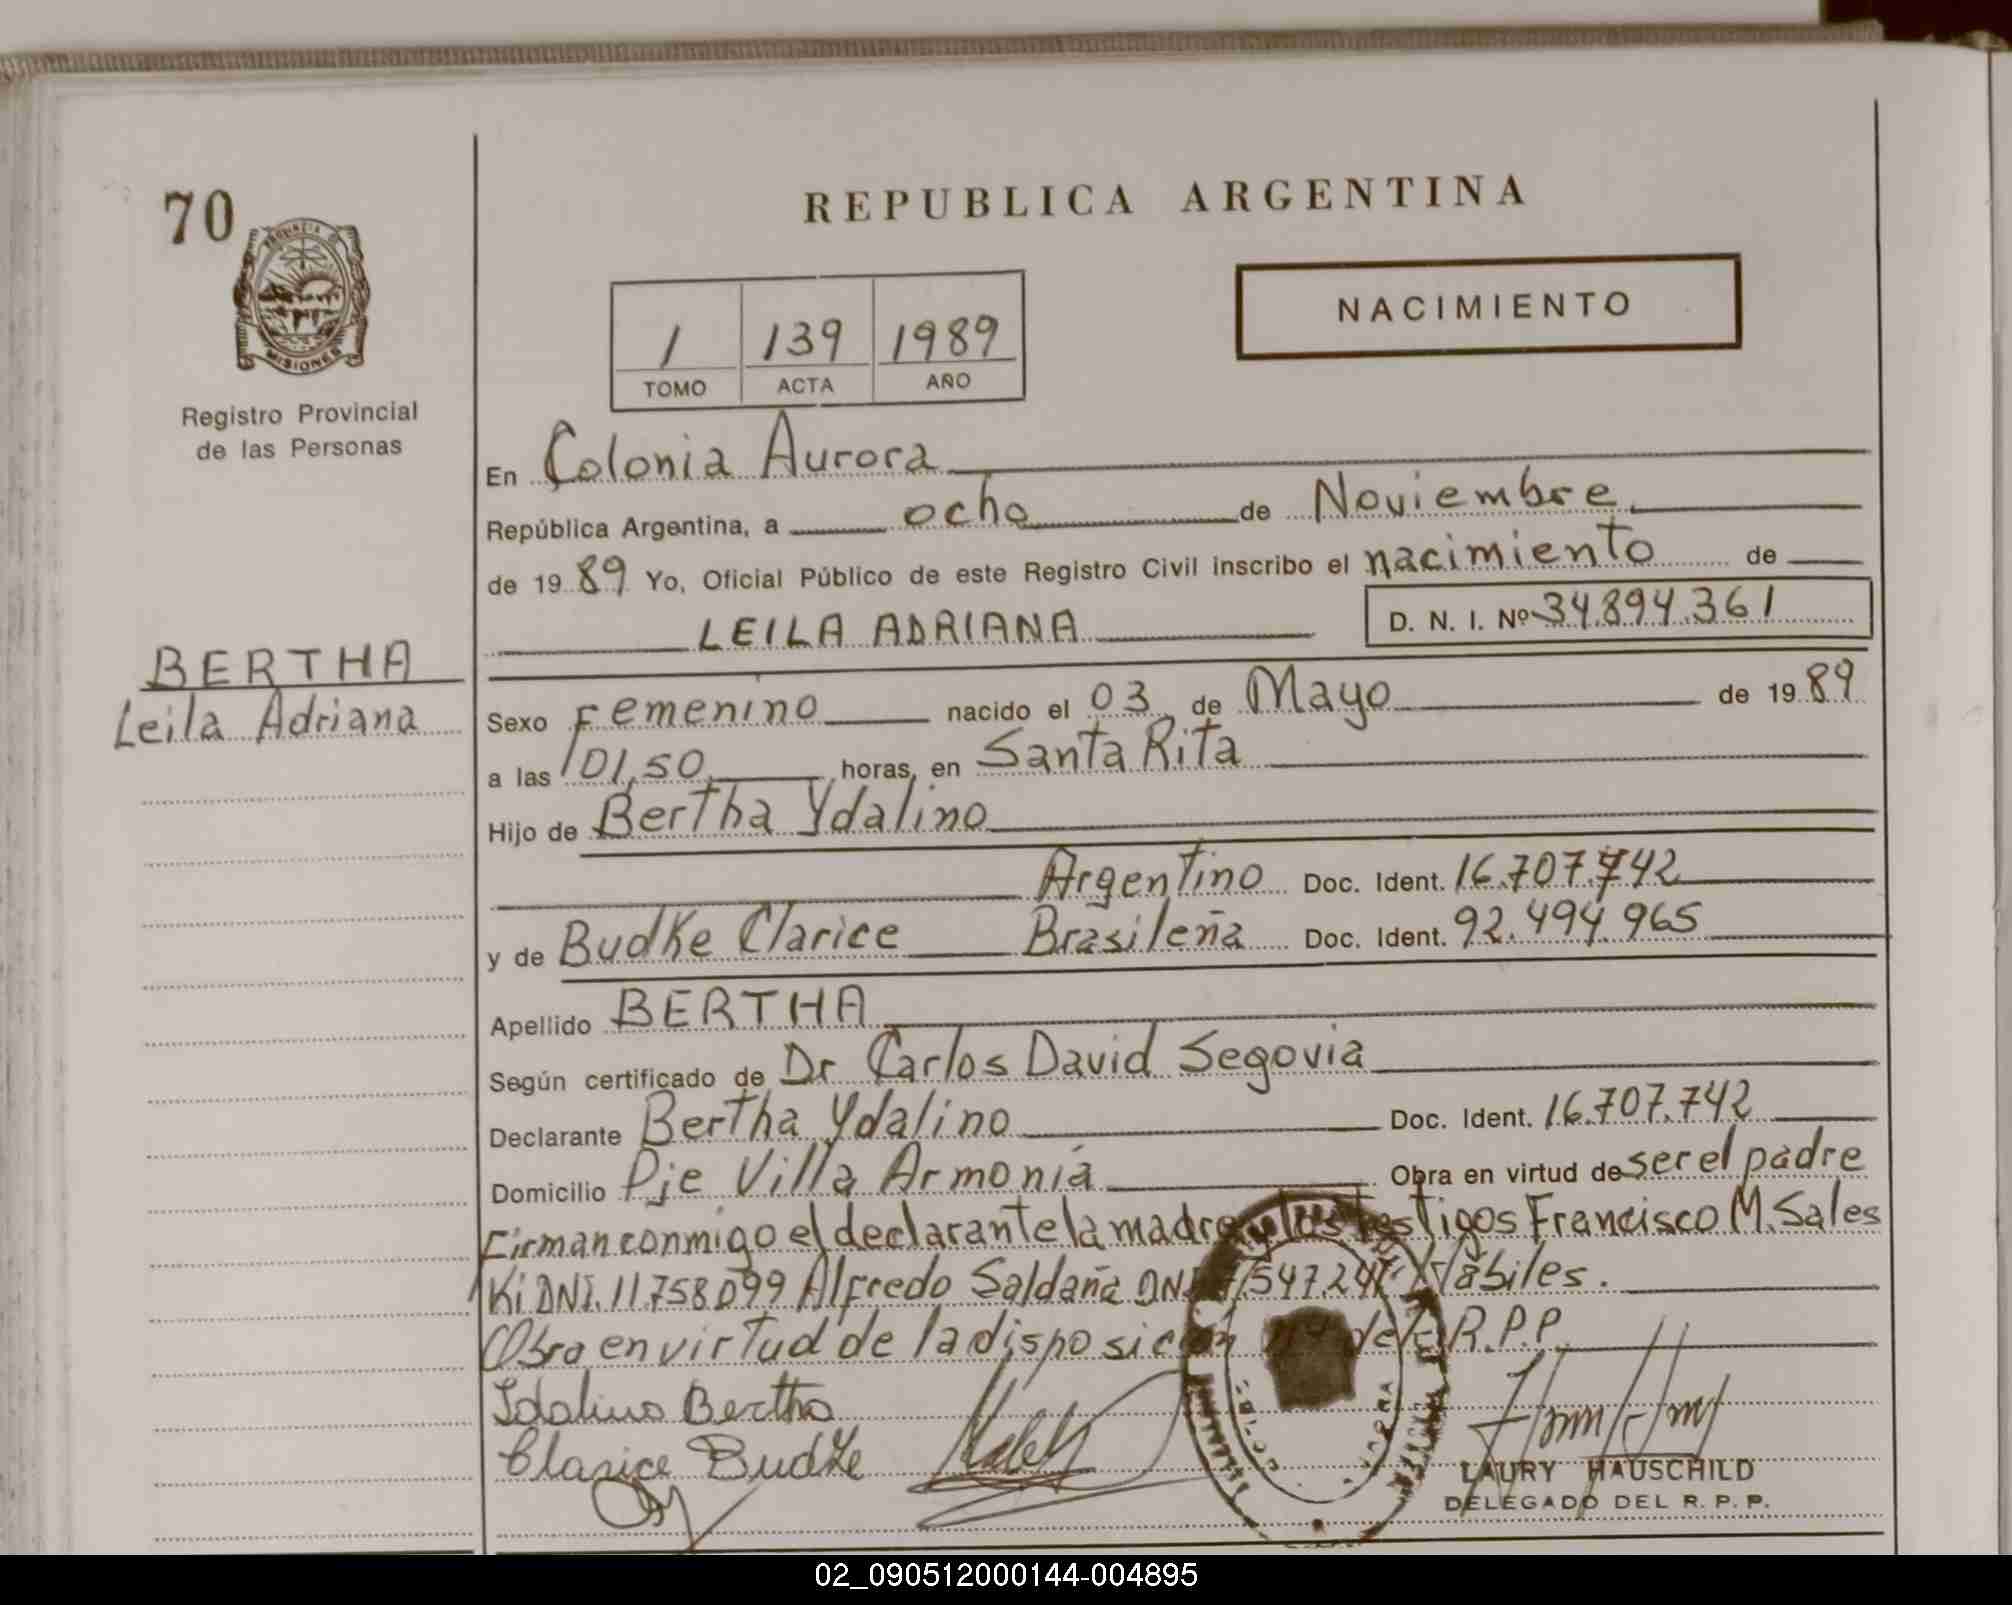 70
REPUBLICA ARGENTINA
PROVINCIA DE
MISIONES
NACIMIENTO
1 139 1989
TOMO ACTA AÑO
Registro Provincial
de las Personas
En Colonia Aurora
República Argentina, a ocho de Noviembre
de 19 89 Yo, Oficial Público de este Registro Civil inscribo el nacimiento de
LEILA ADRIANA D. N. I. Nº 34.894.361
BERTHA
Leila Adriana
Sexo Femenino nacido el 03 de Mayo de 19 89
a las 01,50 horas, en Santa Rita
Hijo de Bertha Ydalino
Argentino Doc. Ident. 16.707.742
y de Budke Clarice Brasileña Doc. Ident. 92.494.965
Apellido BERTHA
Según certificado de Dr Carlos David Segovia
Declarante Bertha Ydalino Doc. Ident. 16.707.742
Domicilio Pje Villa Armonía Obra en virtud de ser el padre
Firman conmigo el declarante la madre y los testigos Francisco M. Sales
Ki DNI. 11.758.099 Alfredo Saldaña Hábiles.
Obro en virtud de la disposición del R.P.P.
Idalino Bertha
Clarice Budke
LAURY HAUSCHILD
DELEGADO DEL R. P. P.
02_090512000144-004895